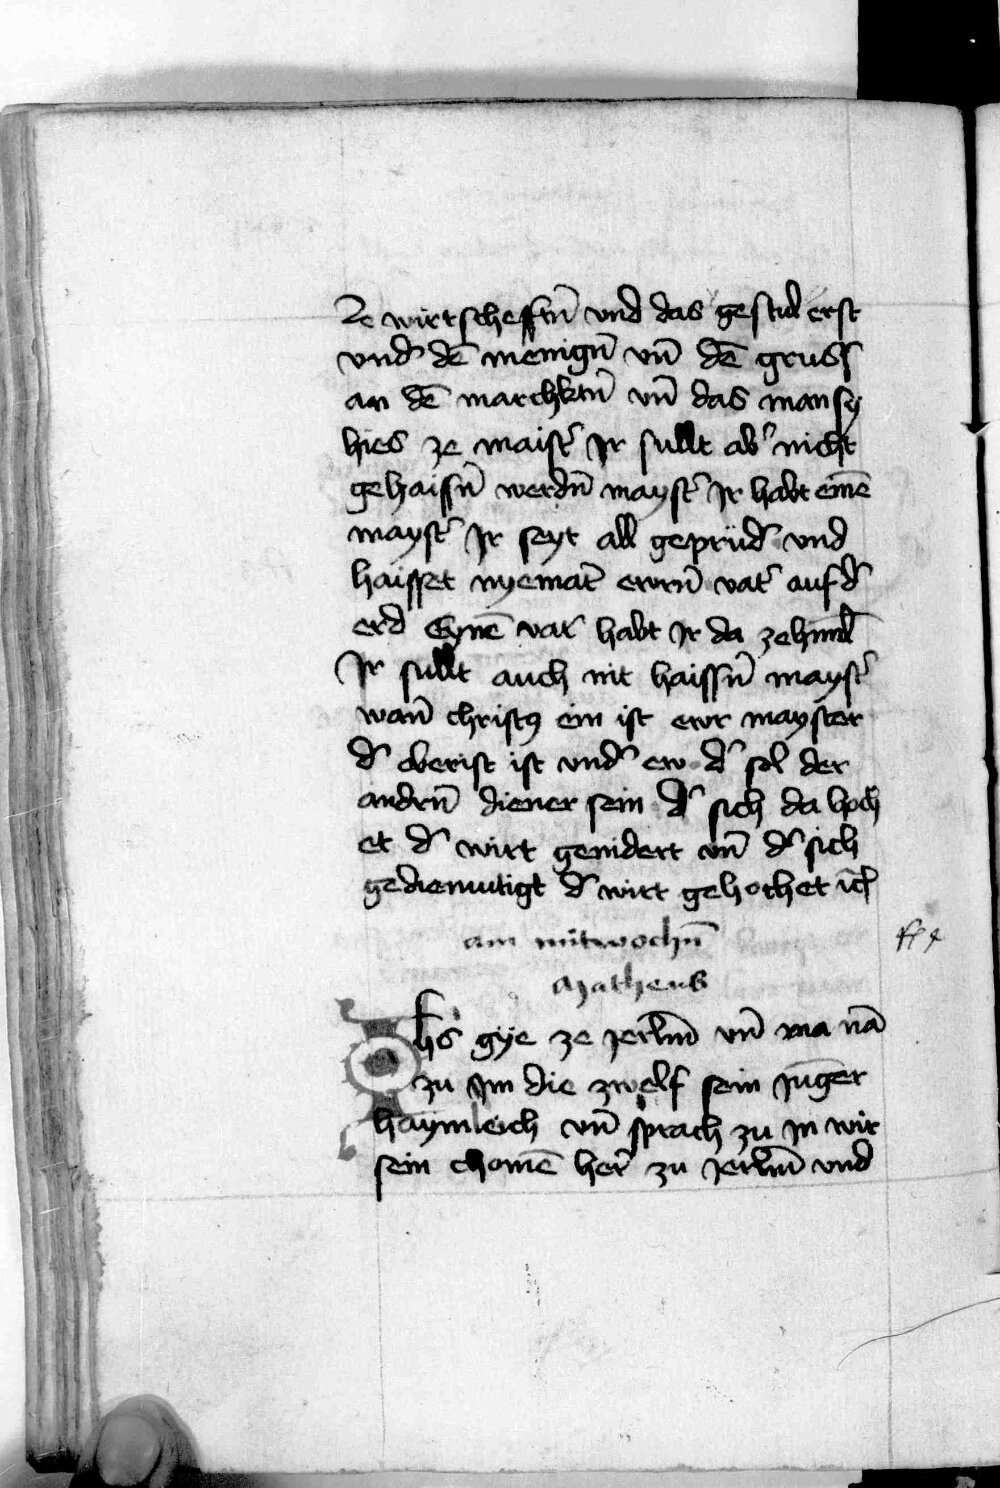 Ze wirtschefftn̄ und das gestul erst
vnd' dē menign̄ vn̄ dē gruss
an dē marchktn̄ vn̄ das man sy
hies ze maist' Jr sullt ab' nicht
gehaissn̄ werdn̄ mayst' Jr habt einē
mayst' Jr seyt all geprüd' vnd
haisset nyemāt ewrn̄ vat' auf d'
erd Eynē vat' habt Jr da ze himl̄
Jr sullt auch nit haissn̄ mayst'
wan̄ christꝯ ein ist ewr mayster
d' oberist ist vnd' ew d' sol der
andrn̄ diener sein d' sich da hoch
et d' wirt genidert vn̄ d' sich
gediemutigt d' wirt gehochet
am mitwochn̄
Matheus
Jhs gye ze jerl̄m vn̄ nā
zu Jm die zwelf sein Jūger
haymleich vn̄ sprach zu jn wir
sein chomē her zu jerl̄m vnd